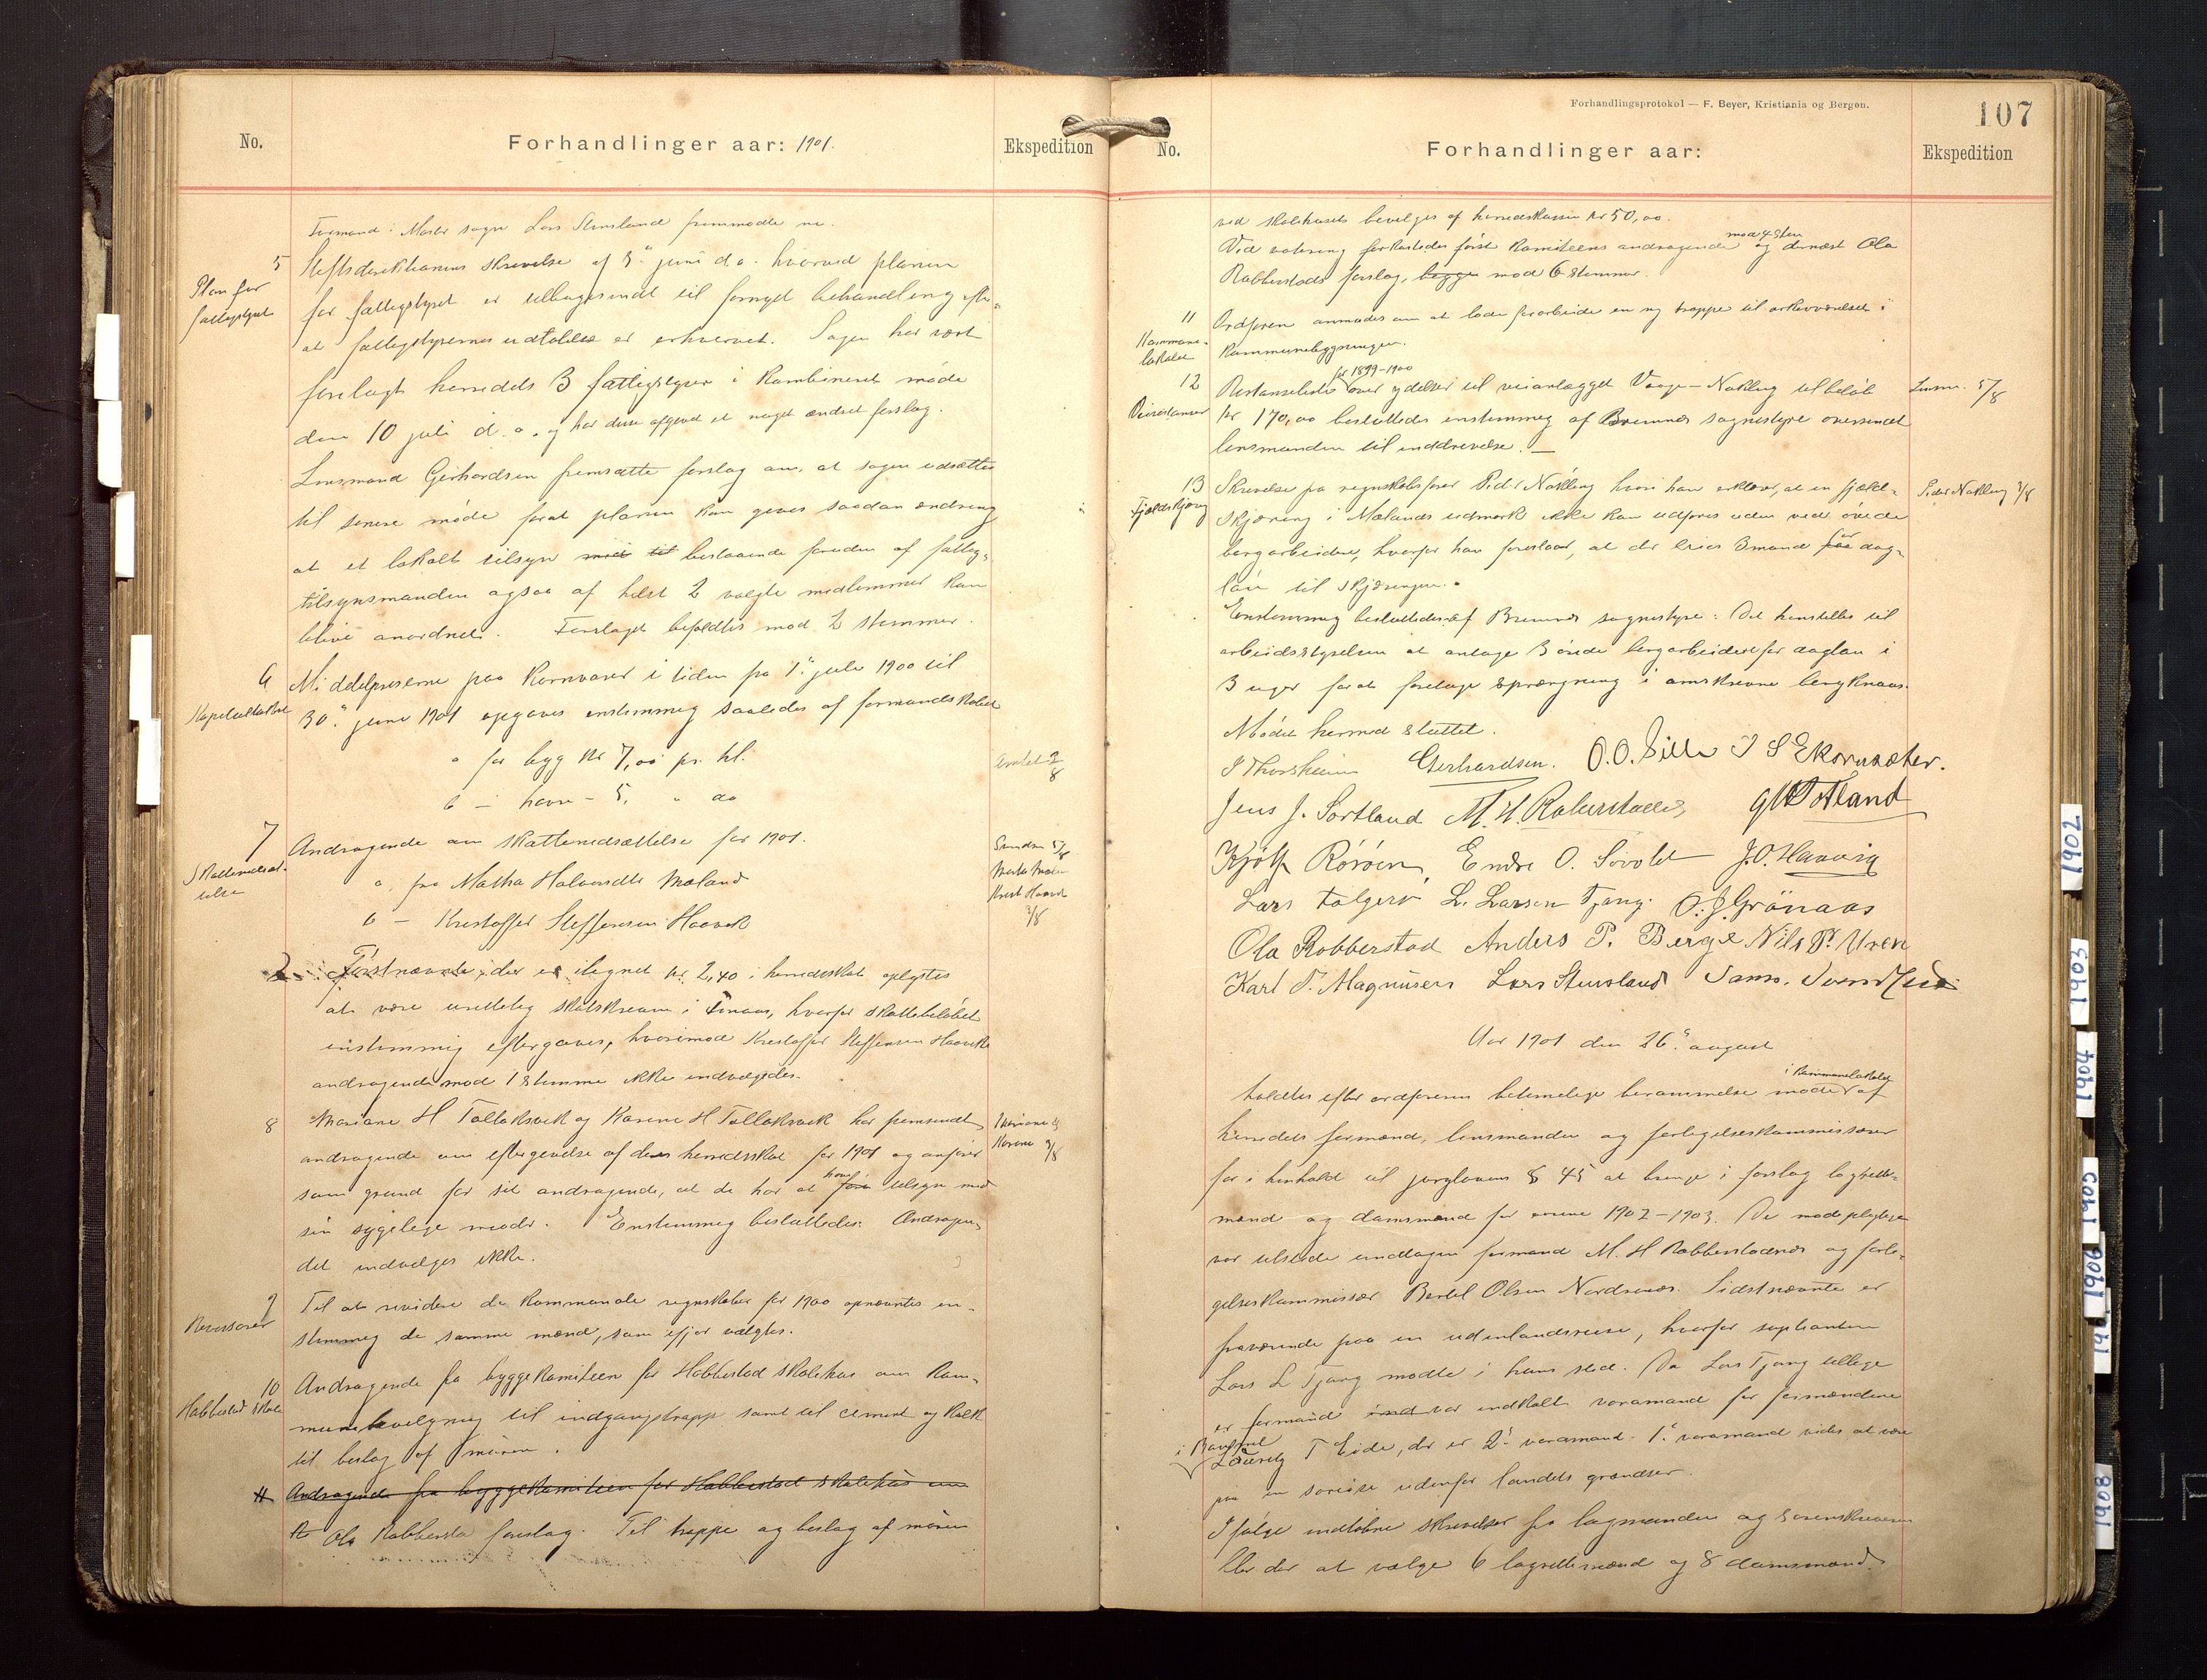 No.
Forhandlinger aar: 1901.
Ekspedition
Formand i Moster sogn Lars Stensland fremmødte nu.
5
Plan for
fattigstyret
Stiftsdirektionens skrivelse af 3. juni d.a. hvorved planen
for fattigstyret er tilbagesendt til fornyet behandling efter
at fattigstyrernes udtalelse er erhvervet. Sagen har vært
forelagt herredets 3 fattigstyrer i kombineret møde
den 10 juli d.a. og har disse afgivet et noget ændret forslag.
Lensmand Gerhardsen fremsatte forslag om, at sagen udsættes
til senere møde forat planen kan gives saadan ændring
at et lokalt tilsyn bestaaende foruden af fattig-
tilsynsmanden ogsaa af helst 2 valgte medlemmer kan
blive anordnet. Forslaget befaldtes mod 2 stemmer.
6
Kapitelstakst
Middelpriserne paa kornvarer i tiden fra 1. juli 1900 til
30. juni 1901 opgaves enstemmig saaledes af formandskabet
a for byg kr 7,00 pr. hl.
b — havre - 5, " do
Amtet 2/8
7
Skattenedsæt-
telse
Andragende om skattenedsættelse for 1901.
a, fra Martha Halvorsdtr Mæland
b — Kristoffer Steffensen Haavik
Førstnævnte, der er ilignet kr. 2,40 i herredsskat oplystes
at være urettelig skatskreven i Finaas, hvorfor skattebeløbet
enstemmig eftergaves, hvorimod Kristoffer Steffensen Haaviks
andragende mod 1 stemme ikke indvilgedes.
8
Mariane H Tollaksvik og Karene H Tollaksvik har fremsendt
andragende om eftergivelse af deres herredsskat for 1901 og anfører
som grund for sit andragende, at de har at have tilsyn med
sin sygelige moder. Enstemmig besluttedes: Andragen-
det indvilges ikke.
Mariane og
Karene 3/8
9
Revisorer
Til at revidere de kommunale regnskaber for 1900 opnævntes en-
stemmig de samme mænd, som ifjor valgtes.
10
Habbestad skole
Andragende fra byggekomiteen for Habbestad skolehus om kom-
munebevilgning til indgangstrappe samt til cement og kalk
til beslag af muren.
11 Andragende fra byggekomiteen for Habbestad skolehus om
Ola Robbersta forslag. Til trappe og beslag af muren
Forhandlingsprotokol — F. Beyer, Kristiania og Bergen.
107
No.
Forhandlinger aar:
Ekspedition
ved skolehuset bevilges af herredskassen kr 50,00.
Ved votering forkastedes først komiteens andragende mod 4 stem og dernæst Ola
Robberstads forslag, begge mod 6 stemmer.
11
Kommune-
lokalet
Ordføren anmodes om at lade forarbeide en ny trappe til arkivværelset i
kommunebygningen.
12
Veirestancer
Restanseliste for 1899-1900 over ydelser til veianlægget Vaage-Nokling til beløb
kr 170,00 besluttedes enstemmig af Bremnes sognestyre oversendt
lensmanden til inddrivelse. —
Lensm. 5/8
13
Fjeldskjæring
Skrivelse fra regnskabsfører Peder Nökling hvori han erklærer, at en fjeld-
skjæring i Mælands udmark ikke kan udføres uden ved øvede
bergarbeidere, hvorfor han foreslaar, at der leies 3 mand for dag-
løn til skjæringen.
Peder Nøkling 3/8
Enstemmig besluttedes af Bremnes sognestyre: Det henstilles til
arbeidsstyrelsen at antage 3 øvede bergarbeidere for dagløn i
3 uger forat foretage sprængning i omskrevne bergknaus.
Mødet hermed sluttet.
J Thorsheim Gerhardsen. O.O. Lille J S Ekornsæter.
Jens J. Sortland M. H. Roberstadnes
Röröen, Endre O. Sivold J.O. Haavig
Lars Folgerö L. Larsen Tjong. O.J. Grönaas
Ola Robberstad Anders P. Berge Nils P. Uren
Karl T. Magnusen Lars Stensland
Aar 1901 den 26. august
holdtes efter ordførerens betimelige berammelse møde i kommunelokalet af
herredets formænd, lensmanden og forligelseskommissærer
for i henhold til jurylovens § 45 at bringe i forslag lagrette-
mænd og domsmænd for aarene 1902-1903. De mødepligtige
var tilstede undtagen formand M. H Robberstadnes og forli-
gelseskommissær Bertel Olsen Nordsnes. Sidstnævnte er
fraværende paa en udenlandsreise, hvorfor suplianten
Lars L Tjong mødte i hans sted. Da Lars Tjong tillige
er formand var indkaldt varamand for formændene
i Bømmel
Lauritz T Eide, der er 2. varamand. 1. varamand vides at være
paa en søreise udenfor landets grændser.
Ifølge indløbne skrivelser fra lagmanden og sorenskriveren
bliver der at vælge 6 lagrettemænd og 8 domsmænd.
1902
1903
1904
1905
1906
1908